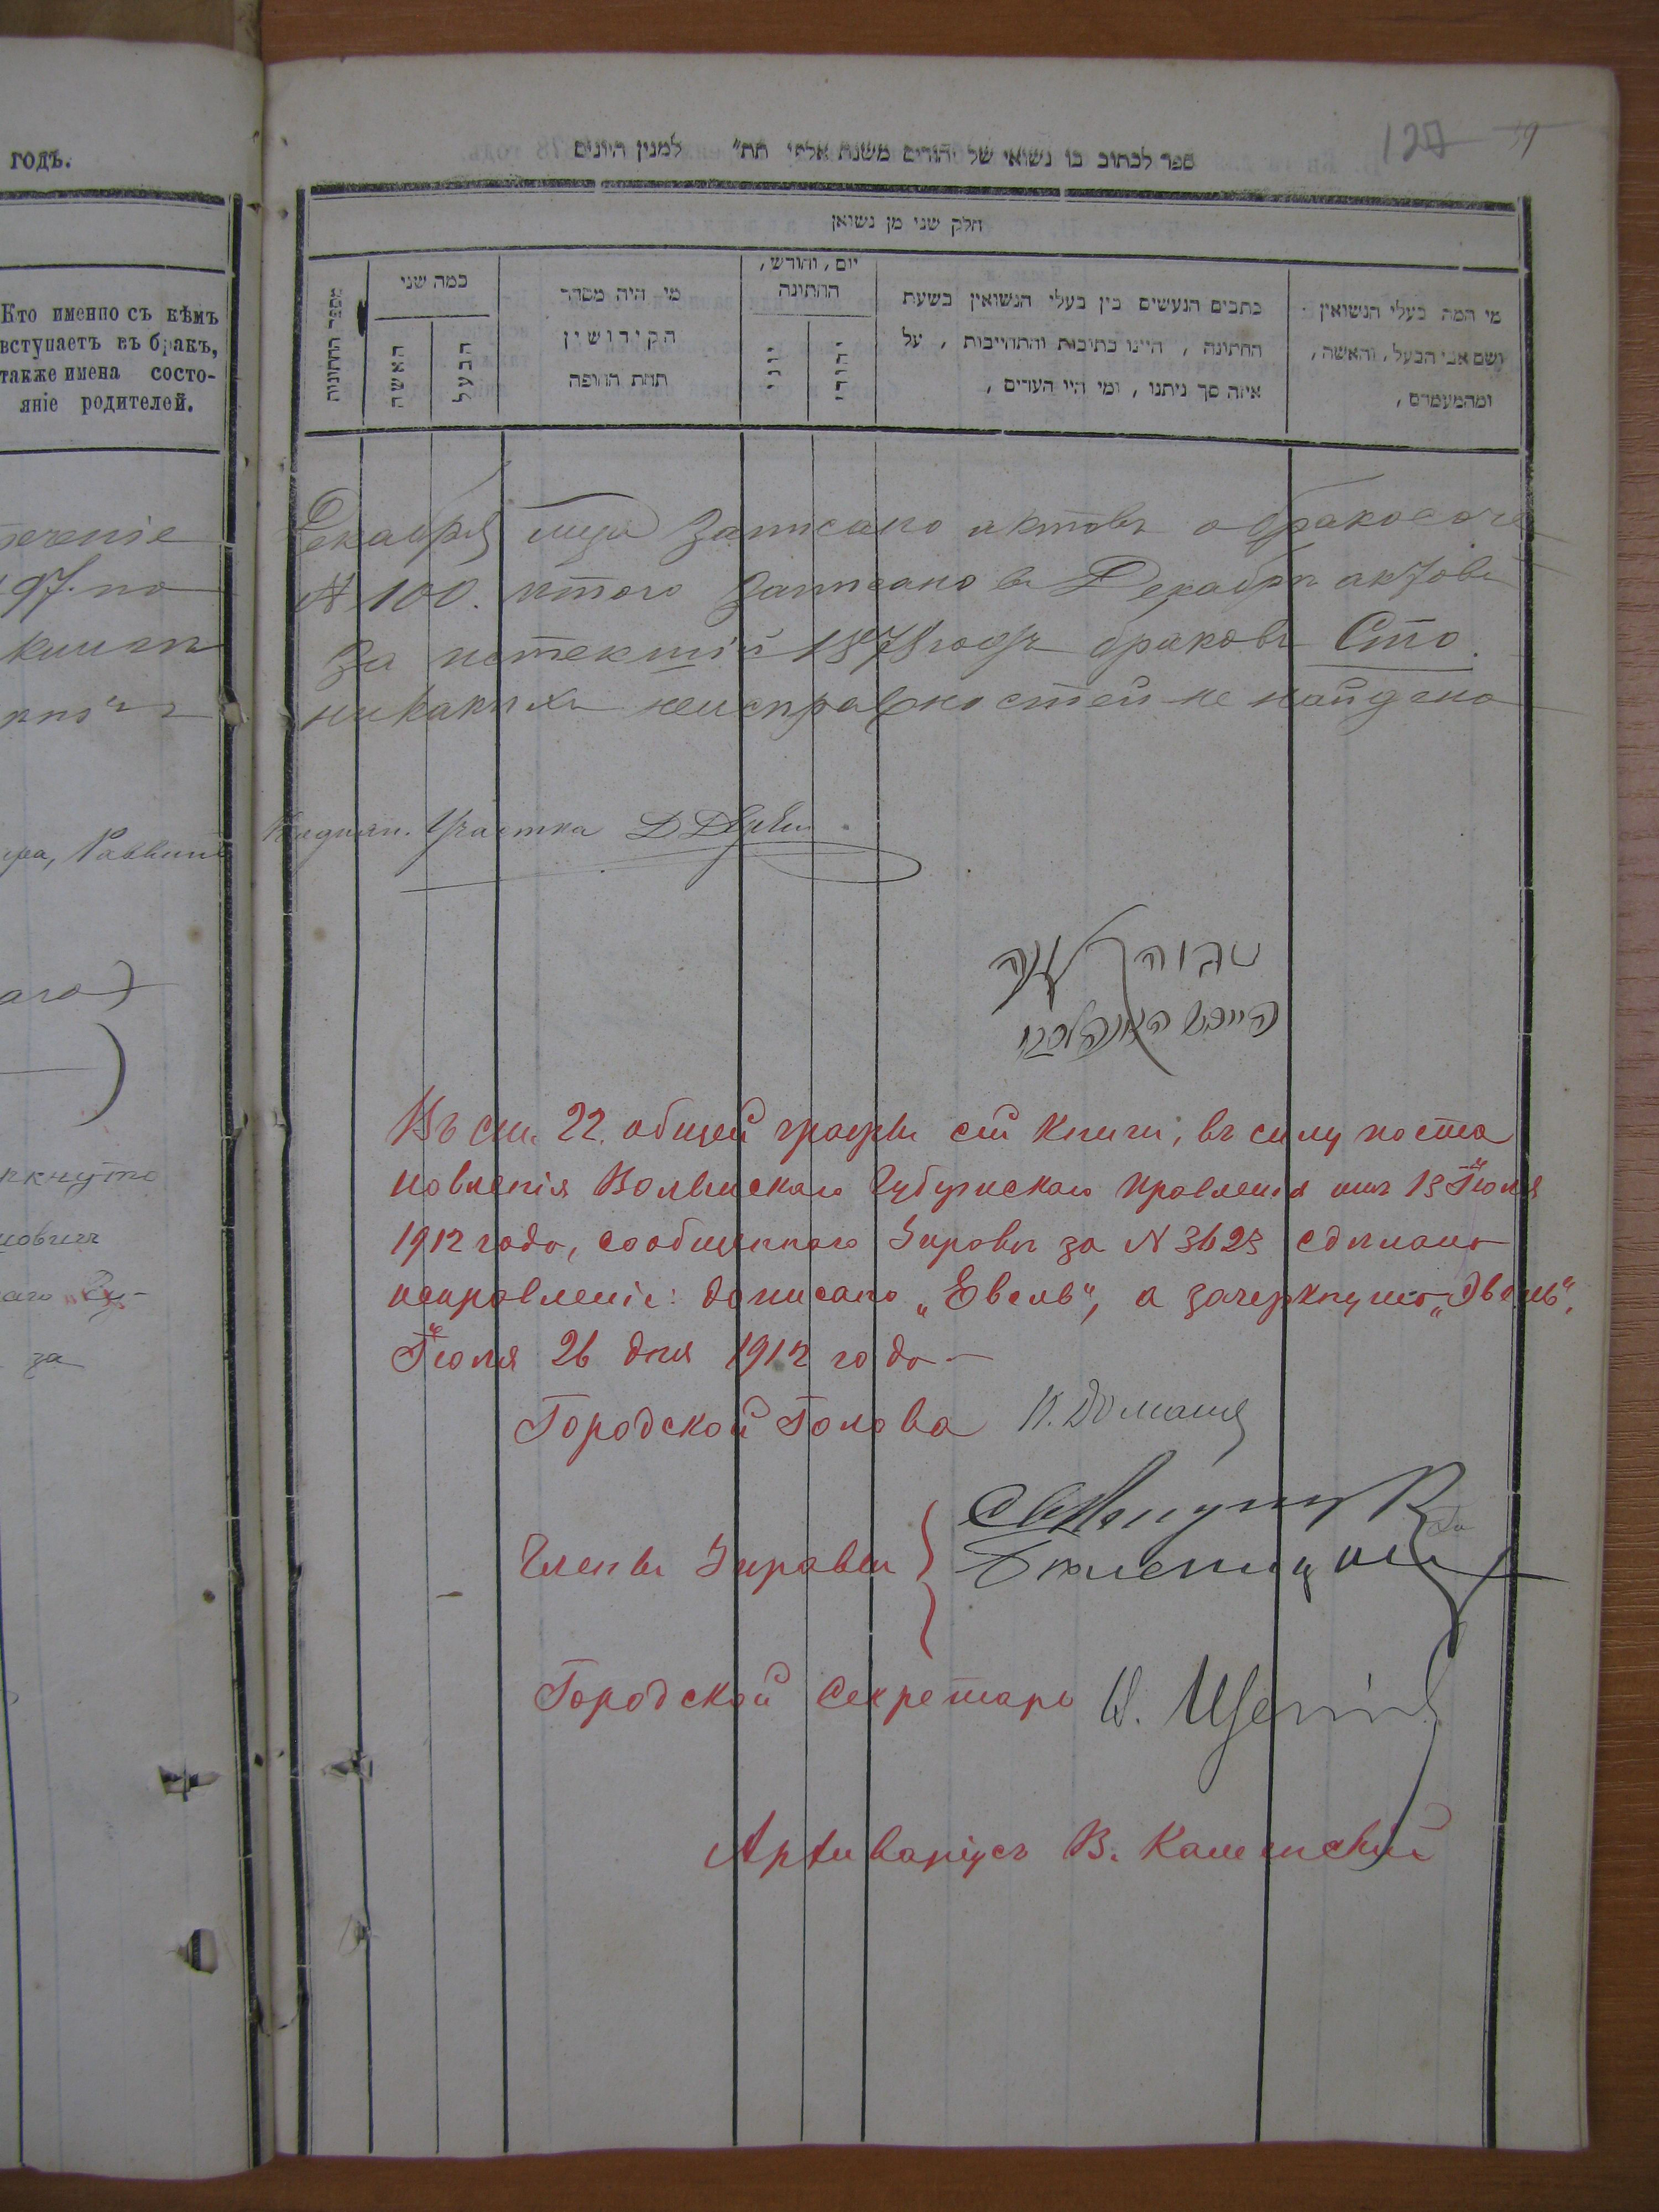 годъ.
Кто именно съ кѣмъ
вступаетъ въ бракъ,
также имена состо-
яніе родителей.
97. по
Раввинъ
за
127
ספר לכתוב בו נשואי של יהודים משנת אלפי תת״ למנין היונים
חלק שני מן נשואן
מספר החתונות
כמה שני
האשה
הבעל
מי היה מסדר
הקידושין
תחת החופה
יום, וחודש,
החתונה
יוני
יהודי
כתבים הנעשים בין בעלי הנשואין בשעת
החתונה, היינו כתובות והתחייבות, על
איזה סך ניתנו, ומי היו העדים,
מי המה בעלי הנשואין
ושם אבי הבעל, והאשה,
ומהמעמדם,
Декабря мца Записано актовъ о бракосоче
№ 100. итого Записано въ Декабрѣ актовъ
За истекшій 1878 годъ браковъ Сто.
никакихъ неисправностей не найдено
Участка
Въ ст. 22 общей графы сей книги, въ силу поста
новленія Волынскаго Губернскаго Правленія отъ 13 Іюля
1912 года, сообщеннаго Управѣ за № 3623 сдѣлано
исправленіе: дописано „Евель", а зачеркнуто „Двель".
Іюля 26 дня 1912 года
Городской Голова
Члены Управы
Городской Секретарь
Архиваріусъ В. Каменскій